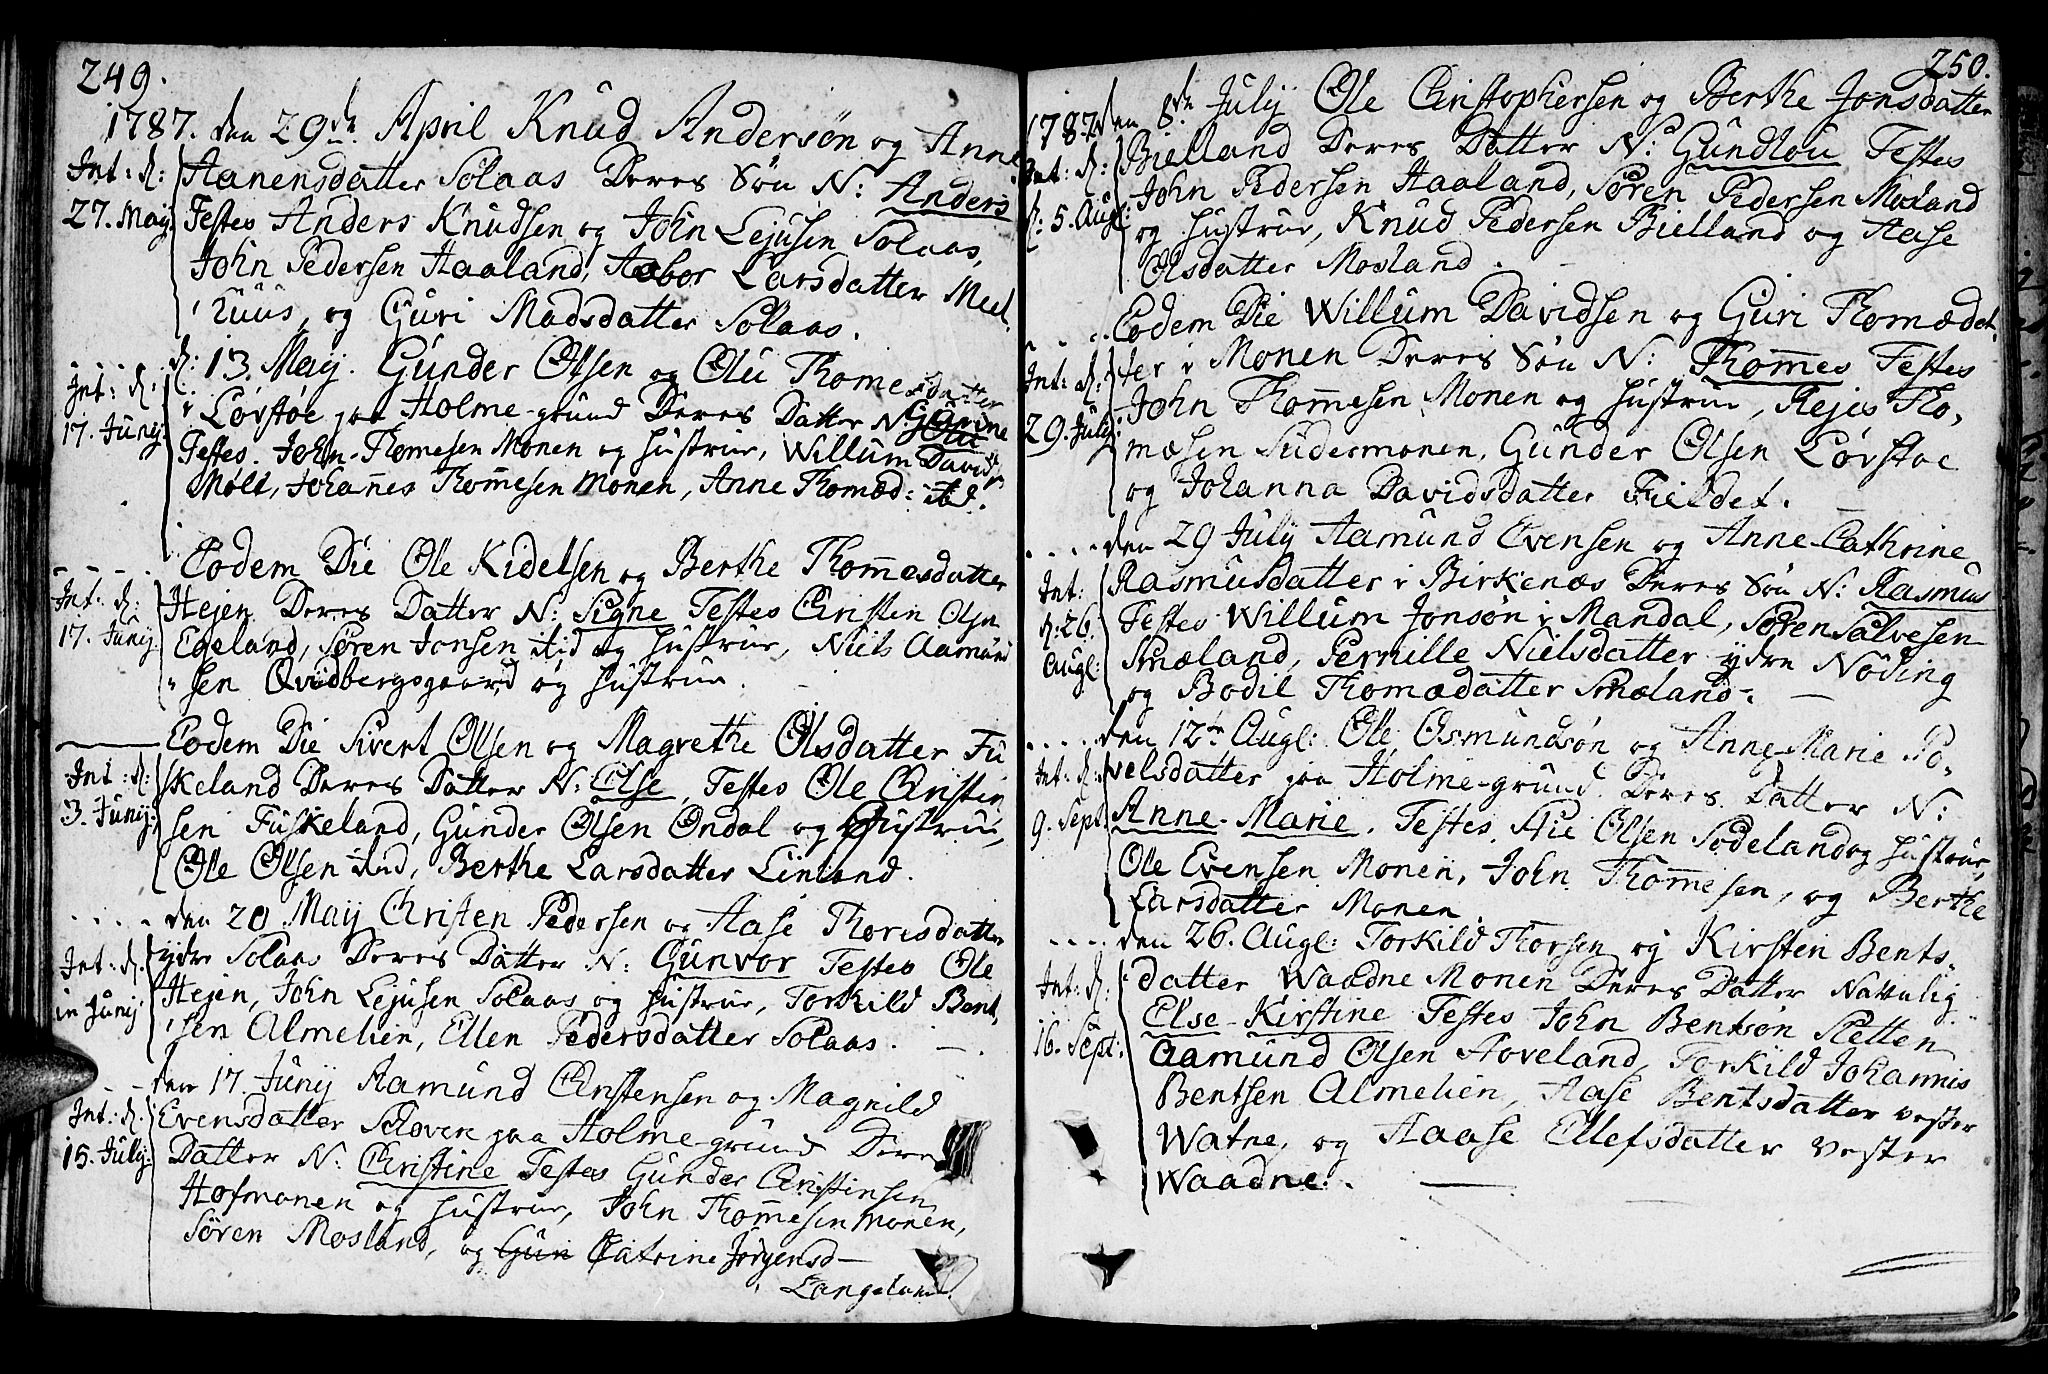 249.
1787. den 29de April Knud Andersøn og Anne
Int: d: Aanensdatter Solaas Deres Søn N: Anders
27. Maij. Testes Anders Knudsen og John Lejusen Solaas,
John Pedersen Haaland, Larsdatter
og Guri Madsdatter Solaas.
d: 13. Maij. Gunder Olsen og Olu Thomesdatter
Int: d: i Løvstøe paa Holme-grund Deres Datter N:
17. Junij. Testes. John Thomesen Monen og Hustrue, Willum David
Møll, Johannes Thomesen Monen, Anne Thomæd: ibd.
Eodem Die Ole Kidelsen og Berthe Thomesdatter
Int: d: Hejen Deres Datter N: Signe Testes Christen Olsn
17. Junij. Egeland, Søren Jonsen ibid og Hustrue, Niels Aamund
sen Qvidbergsgaard og Hustrue.
Eodem Die Sivert Olsen og Magrethe Olsdatter Fu
Int: d: skeland Deres Datter N: Else, Testes Ole Christen
3. Junij: sen Fuskeland, Gunder Olsen Ondal og Hustrue,
Ole Olsen ibid, Berthe Larsdatter Linland.
den 20 Maij Christen Pedersen og Aase Thorisdatter
Int: d. ydre Solaas Deres Datter N: Gunvor Testes Ole
in Junij Hejen, John Lejusen Solaas og Hustrue, Torkild Bent
sen Almelien, Ellen Pedersdatter Solaas.
den 17. Junij Aamund Christensen og Magnild
Int: d: Evensdatter Schoven paa Holme-grund Deres
15. Julij: Datter N: Christine Testes Gunder Christensen
Hofmonen og Hustrue, John Thomesen Monen,
Søren Mosland, og Guri Catrine Jørgensd
Langeland.
250.
1787 den 8de Julij Ole Christophersen og Berthe Jonsdatter
Int: d: Bielland Deres Datter N: Gundlou Testes
d: 5. Augl: John Pedersen Haaland, Søren Pedersen Mosland
og Hustrue, Knud Pedersen Bielland og Aase
Olsdatter Mosland.
Eodem Die Willum Davidsen og Guri Thomædat
Int: d: ter i Monen Deres Søn N: Thomes Testes
29. Julij: John Thomesen Monen og Hustrue, Rejes Tho,
mæsen Sudermonen, Gunder Olsen Løvstøe
og Johanna Davidsdatter Fieldet.
den 29 Julij Aamund Evensen og Anne Cathrine
Int: Rasmusdatter i Birkenæs Deres Søn N: Rasmus
d: 26. Testes Willum Jonsøn i Mandal, Søren Salvesen
Augl: Smæland, Pernille Nielsdatter ydre Nøding
og Bodil Thomædatter Smæland.
den 12te Augl: Ole Osmundsøn og Anne Marie Po,
Int: d: velsdatter paa Holme-grund Deres Datter N:
9. Sept. Anne-Marie. Testes Aie Olsen Sødeland og Hustrue,
Ole Evensen Monen, John Thomesen, og Berthe
Larsdatter Monen.
den 26. Augl: Torkild Thorsen og Kirsten Bents,
Int: d: datter Waadne Monen Deres Datter Navnlig
Else-Kirstine Testes John Bentsøn Sletten
16. Sept: Aamund Olsen Hoveland, Torkild Johannis
Bentsen Almelien, Aase Bentsdatter vester
Watne, og Aaase Ellefsdatter vester
Waadne.